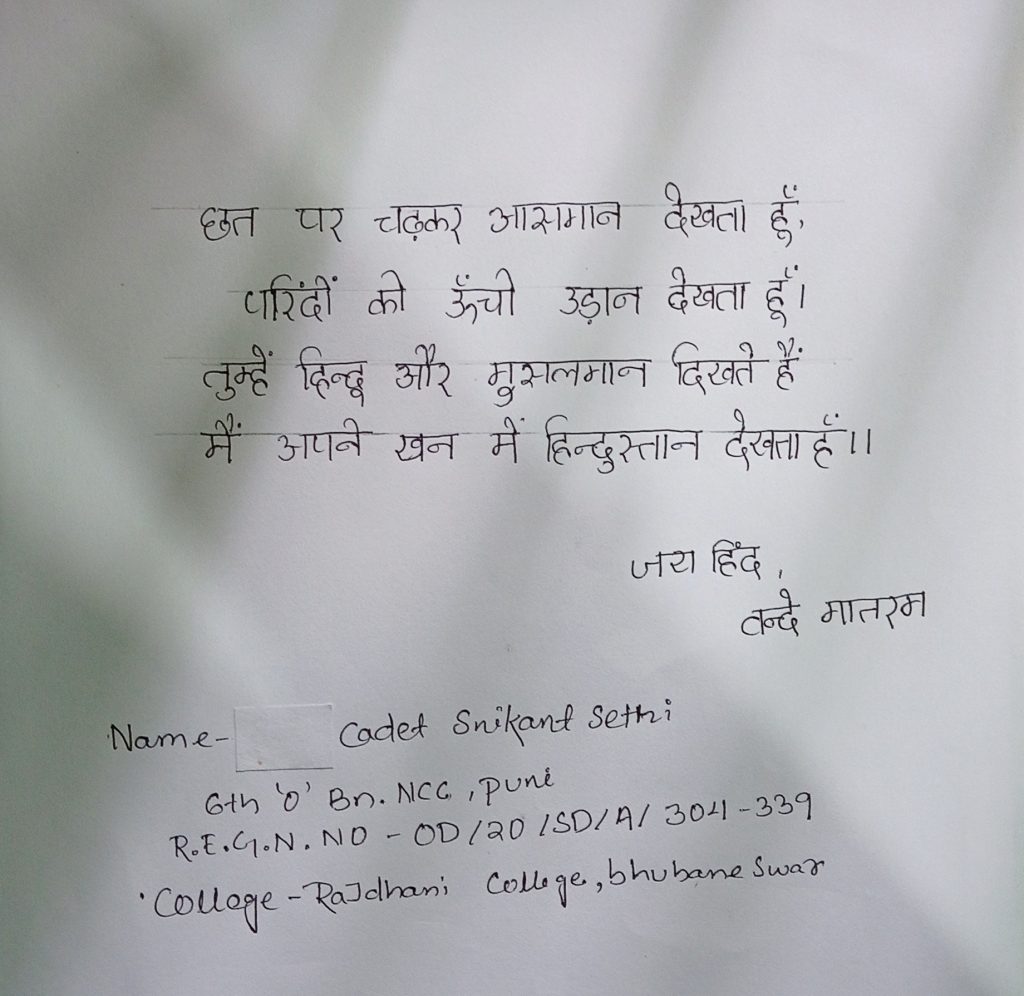 छत पर चढ़कर आसमान देखता हूँ,
परिंदों को ऊँची उड़ान देखता हूँ।
तुम्हें हिन्दू और मुसलमान दिखते हैं
मैं अपने खन में हिन्दुस्तान देखता हूँ।।
जय हिंद,
वन्दे मातरम
Name- Cadet Srikant Sethi
6th 'O' Bn. NCC, puri
R.E.G.N. NO - OD/20/SD/A/304-339
College - RaJdhani College, bhubaneswar